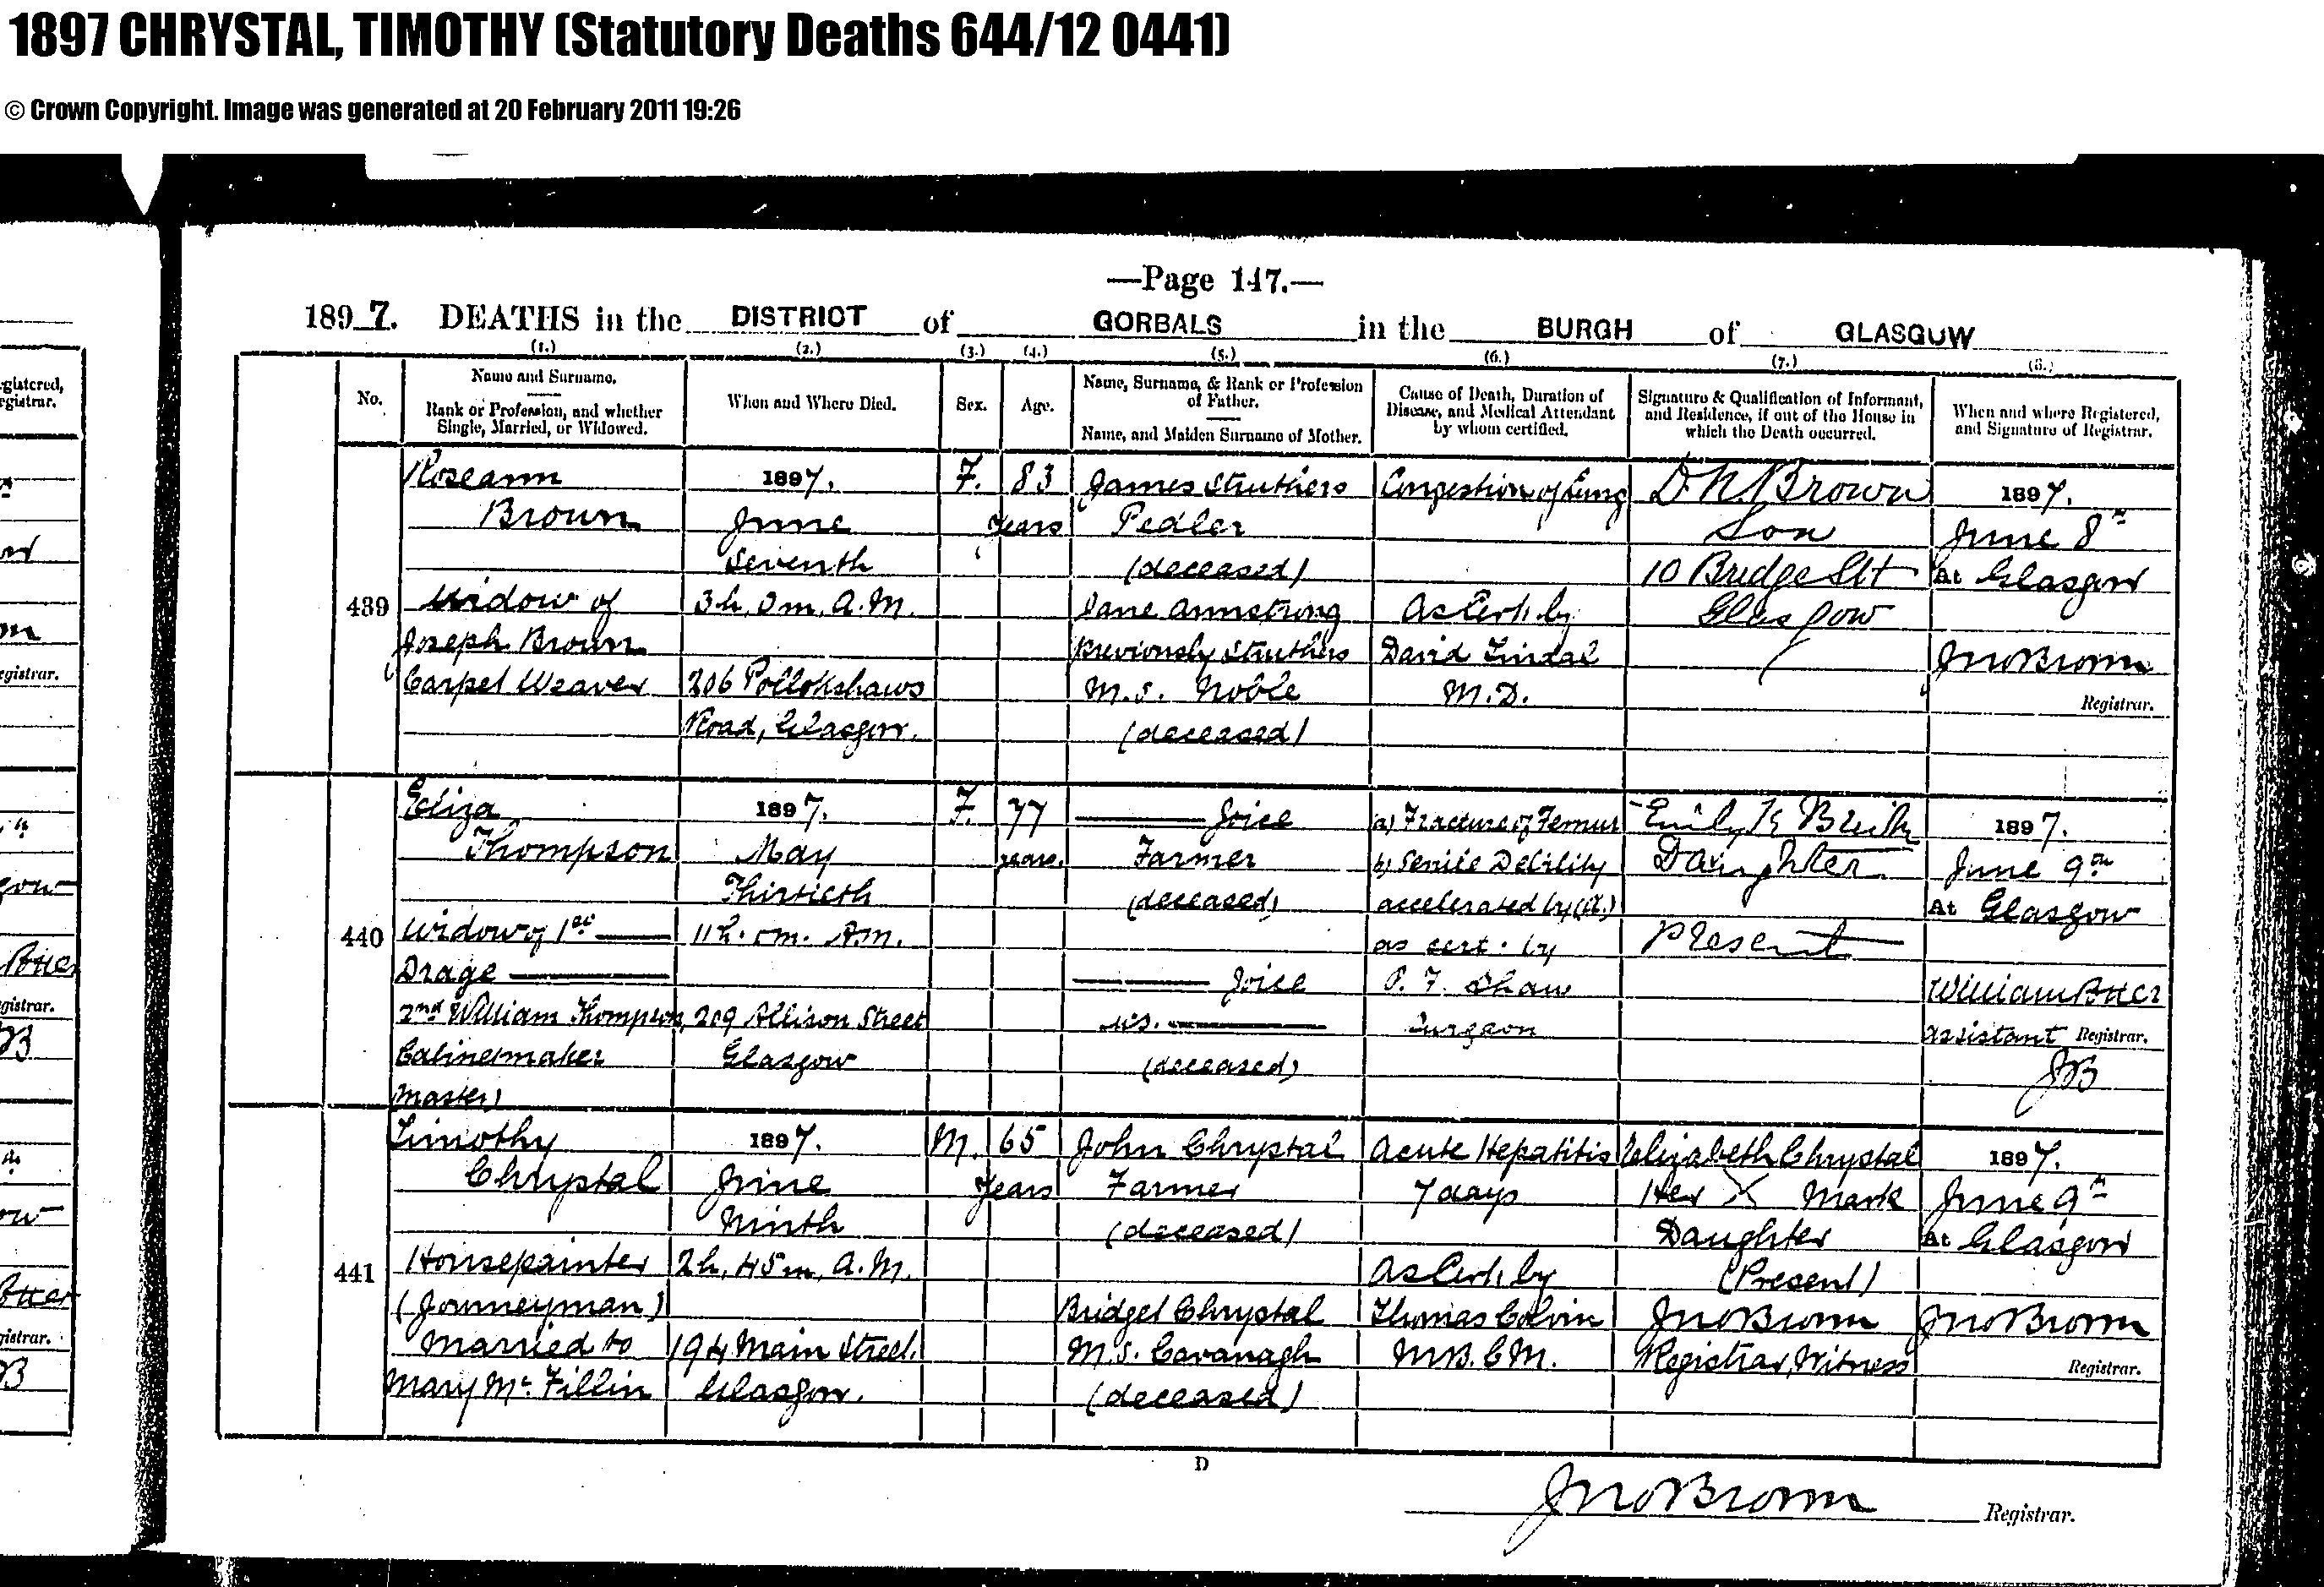 1897 CHRYSTAL, TIMOTHY (Statutory Deaths 644/12 0441)
© Crown Copyright. Image was generated at 20 February 2011 19:26
—Page 147.—
1897. DEATHS in the DISTRICT of GORBALS in the BURGH of GLASGOW
(1.) (2.) (3.) (4.) (5.) (6.) (7.) (8.)
No.
Name and Surname.
Rank or Profession, and whether
Single, Married, or Widowed.
When and Where Died.
Sex.
Age.
Name, Surname, & Rank or Profession
of Father.
Name, and Maiden Surname of Mother.
Cause of Death, Duration of
Disease, and Medical Attendant
by whom certified.
Signature & Qualification of Informant,
and Residence, if out of the House in
which the Death occurred.
When and where Registered,
and Signature of Registrar.
439
Roseann
Brown
Widow of
Joseph Brown
Carpet Weaver
1897.
June
Seventh
3h. 0m. A.M.
206 Pollokshaws
Road, Glasgow.
F.
83
years
James Struthers
Pedler
(deceased)
Jane Armstrong
previously Struthers
M.S. Noble
(deceased)
Congestion of Lung
As Cert. by
David Tindal
M.D.
D. N. Brown
Son
10 Bridge St
Glasgow
1897.
June 8th
At Glasgow
Jno Brown
Registrar.
440
Eliza
Thompson
Widow of 1st
Drage
2nd William Thompson
Cabinetmaker
Master)
1897.
May
Thirtieth
11h. 0m. A.M.
209 Allison Street
Glasgow
F.
77
years.
Joice
Farmer
(deceased)
Joice
M.S.
(deceased)
a) Fracture of Femur
b) Senile Debility
accelerated by (a.)
as cert. by
P. F. Shaw
Surgeon
Emily
Daughter
Present
1897.
June 9th
At Glasgow
William
Assistant Registrar.
JB
441
Timothy
Chrystal
Housepainter
(Journeyman)
Married to
Mary Mc Fillin
1897.
June
Ninth
2h. 45m. A.M.
194 Main Street.
Glasgow.
M.
65
Years
John Chrystal
Farmer
(deceased)
Bridget Chrystal
M.S. Cavanagh
(deceased)
Acute Hepatitis
7 days
As Cert. by
Thomas Colvin
M.B. C.M.
Elizabeth Chrystal
Her X Mark
Daughter
(Present)
Jno Brown
Registrar, Witness
1897.
June 9th
At Glasgow
Jno Brown
Registrar.
D
Jno Brown Registrar.